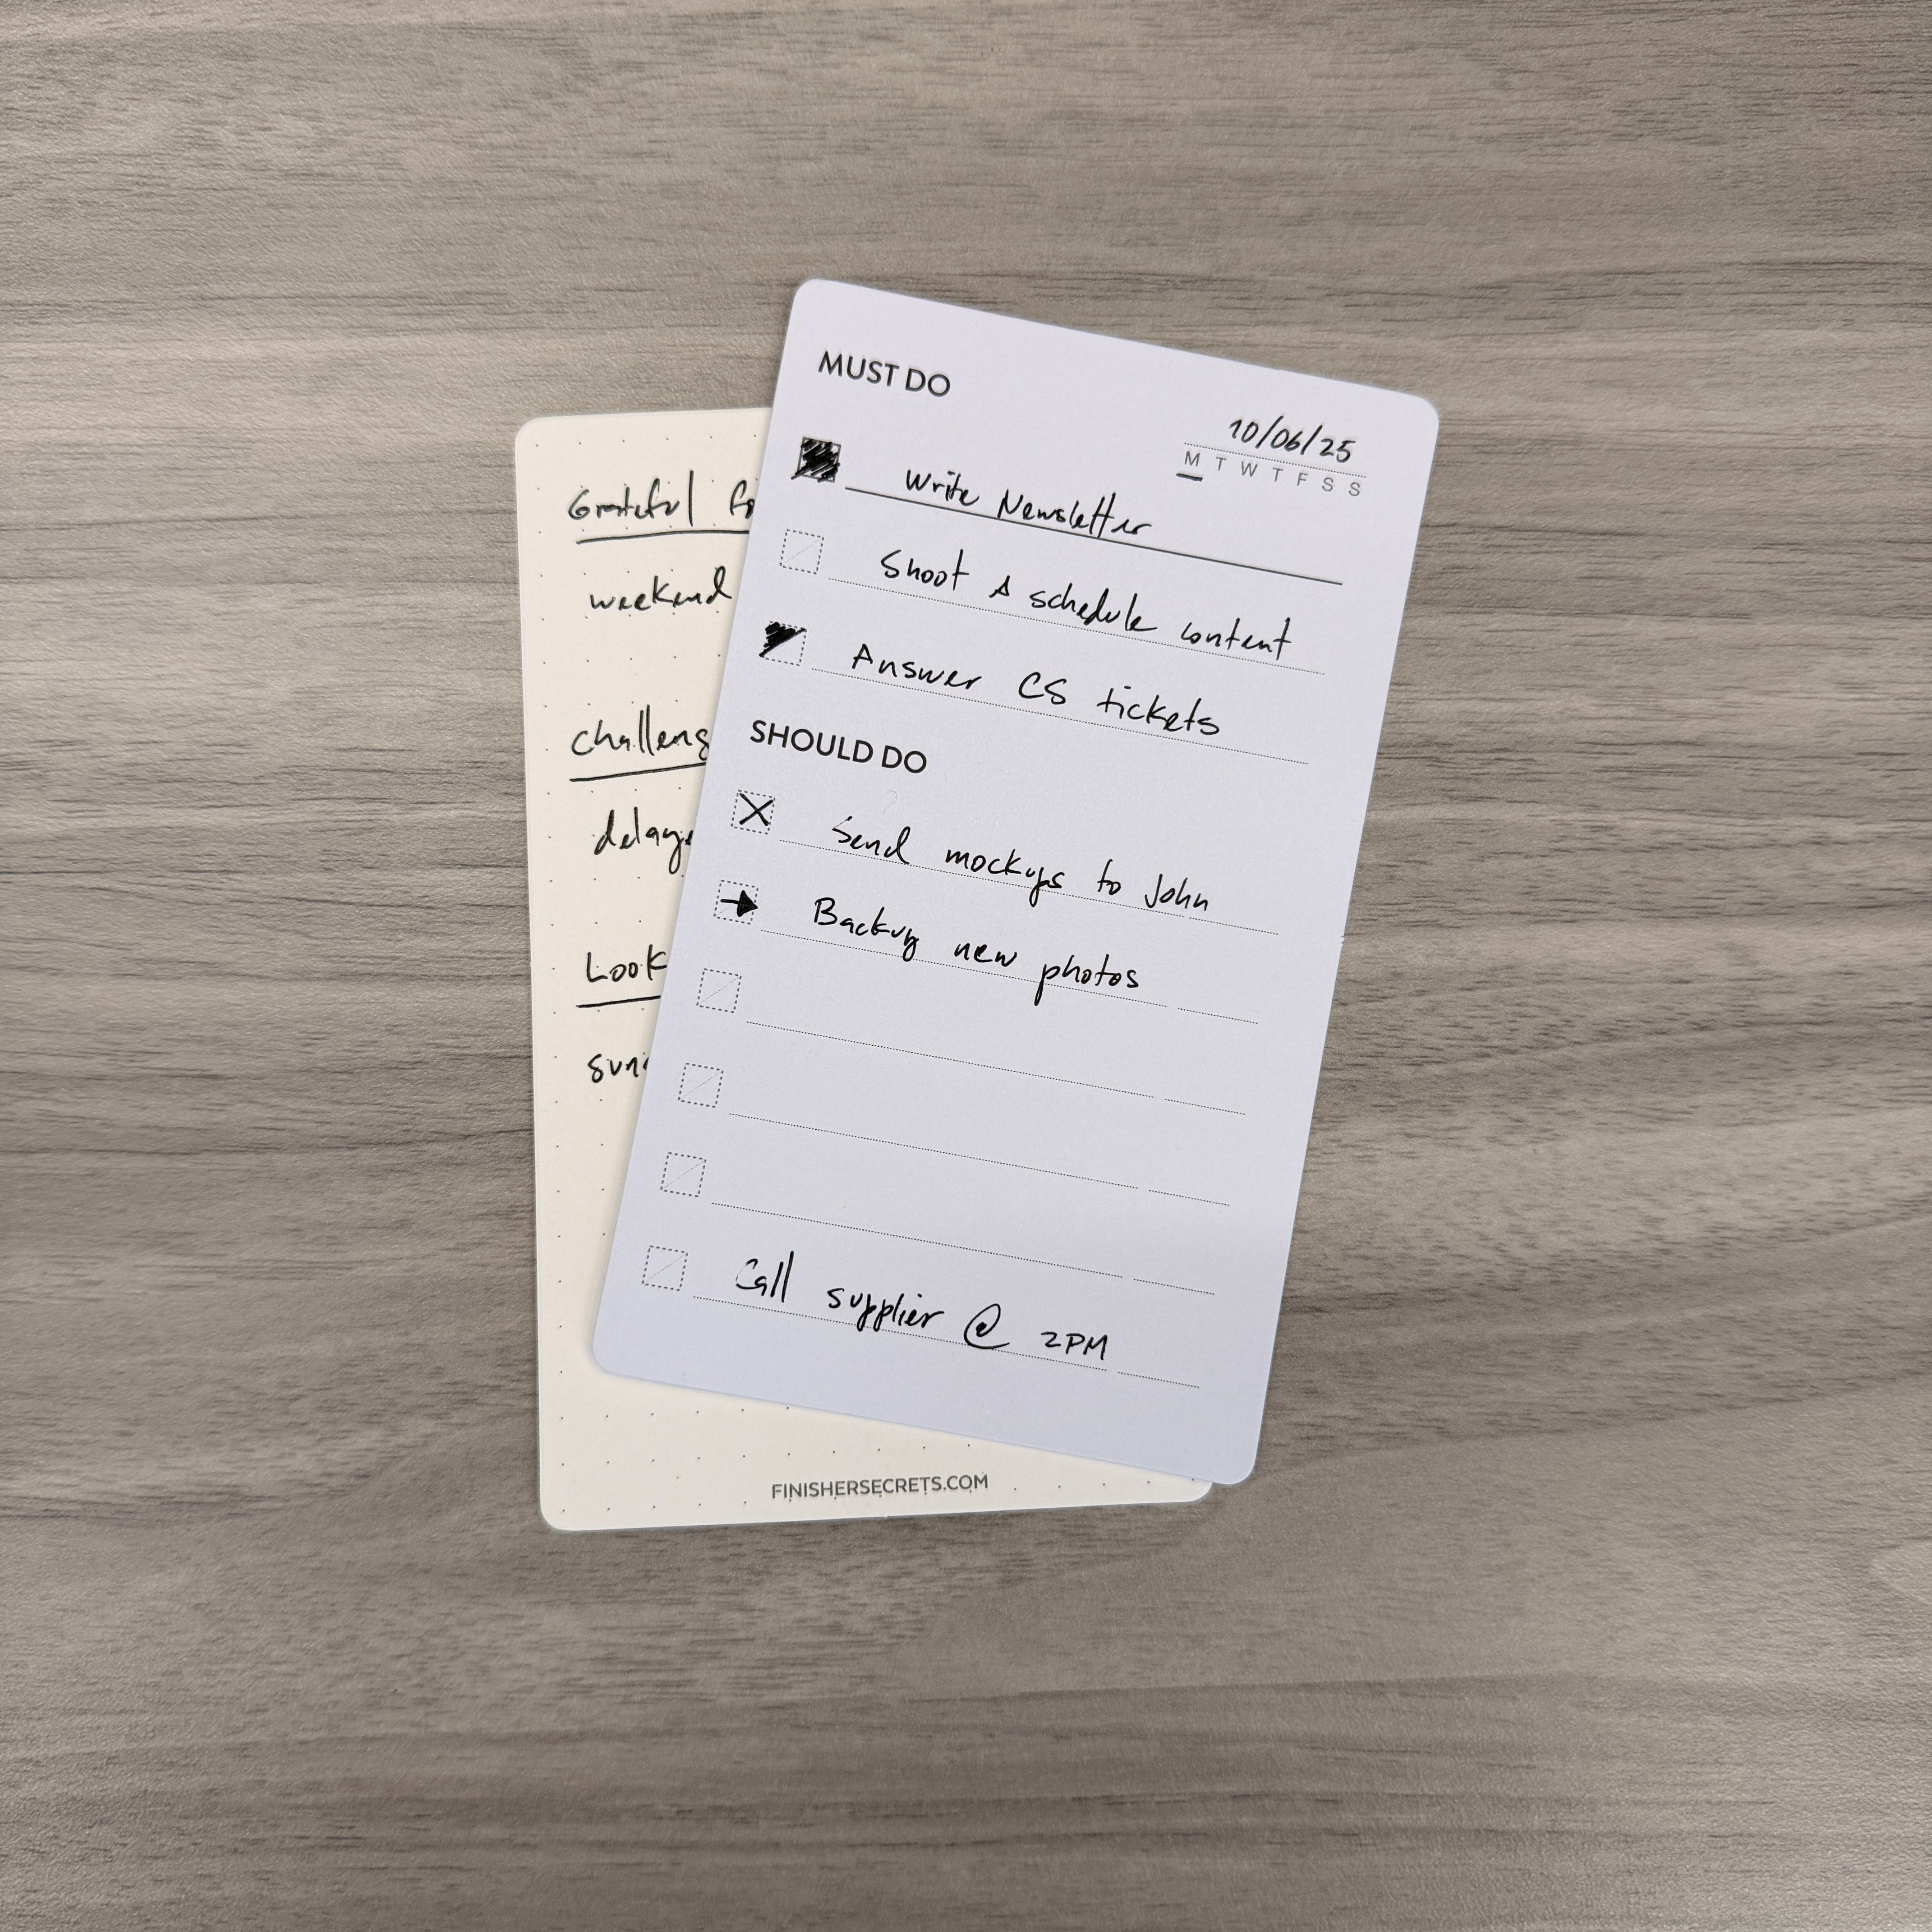 MUST DO
10/06/25
M T W T F S S
Write Newsletter
Shoot & schedule content
Answer CS tickets
SHOULD DO
Send mockups to John
Backup new photos
Call supplier @ 2PM
Grateful fo
weekend
challeng
delay
Look
sun
FINISHERSECRETS.COM